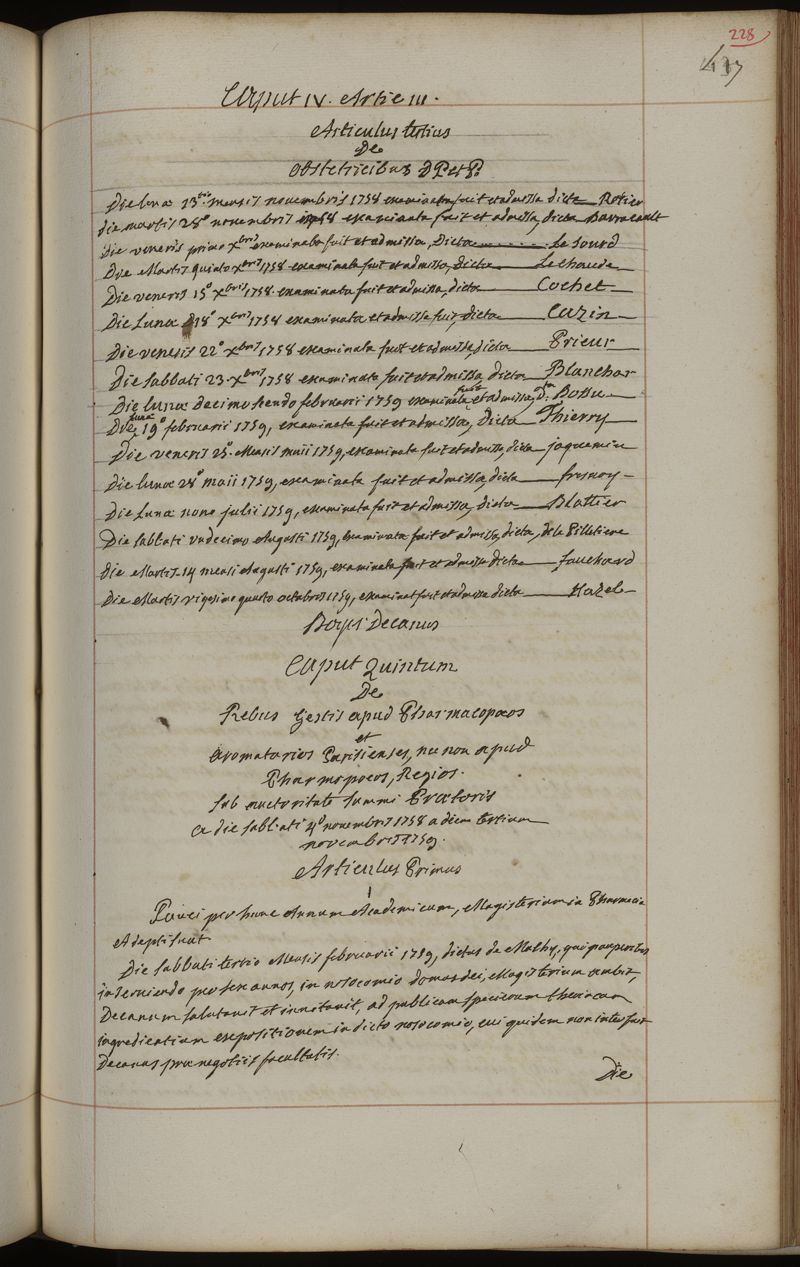 228
Caput IV. Artic III.
Articulus tertius
De
obstetricibus
Die lunæ 13. mensis novembris 1758 examinata fuit et admissa dicta Rotier
die martis 28° novembris 1758 examinata fuit et admissa, dicta Barracault
die veneris primo Xbris examinata fuit et admissa, Dicta Le Sourd
Die Martis quinto Xbris 1758 examinata fuit et admissa, dicta Lechaude
Die veneris 15° Xbris 1758. examinata fuit et admissa, dicta Cochet
Die Lunæ 18° Xbris 1758 examinata et admissa fuit, dicta Cazin
Die veneris 22° Xbris 1758 examinata fuit et admissa, dicta Prieur
Die sabbati 23. Xbris 1758 examinata fuit et admissa dicta Blanchar
Die lunæ decimo februarii 1759 examinata fuit et admissa, dta D. Bossu
Die lunæ 19° februarii 1759, examinata fuit et admissa, dicta Thierry
Die veneris 25. Mensis maii 1759, examinata fuit et admissa, dicta jaquemin
Die lunæ 28° maii 1759, examinata fuit et admissa, dicta fresnoy
Die Lunæ nono julii 1759, examinata fuit et admissa, dicta Blattier
Die sabbati undecimo Augusti 1759, examinata fuit et admissa, dicta, de la Pilletiere
die Martis 14 mensi Augusti 1759, examinata fuit et admissa dicta fauchard
Die Martis vigesimo quarto octobris 1759, examinat fuit et admissa dicta Hazel
Boyer Decanus
Caput Quintum
De
Rebus Gestis apud Pharmacopæos
et
Aromatarios Parisienses, nec non apud
Pharmopoeos, Regios.
sub auctoritate summi Prætoris
a die sabbati 4° novembris 1758 a diem tertium
novembris 1759.
Articulus Primus
Pauci per hunc Annum Academicum, Magisterium in Pharmacia
Adepti sunt
Die sabbati tertio Mensis februarii 1759, dictus de Mathy, qui pauperibus
inserviendo per sex annos, in nosocomio domus dei, Magisterium ambit,
Decanum salutavit et invitavit, ad publicam specierum
ingredientium expositionem in dicto nosocomio, cui quidem non interfuit
Decanus præ negotiis facultatis.
Die